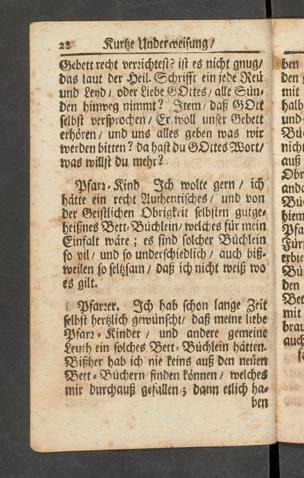 22 Kurtze Underweisung/
Gebett recht verrichtest? ist es nicht gnug/
das laut der Heil. Schrifft ein jede Reü
und Leyd/ oder Liebe GOttes/ alle Sün-
den hinweg nimmt? Item/ daß GOtt
selbst versprochen/ Er woll unser Gebett
erhören/ und uns alles geben was wir
werden bitten? da hast du GOttes Wort/
was willst du mehr?
Pfarr-Kind. Ich wolte gern/ ich
hätte ein recht Authentisches/ und von
der Geistlichen Obrigkeit selbsten gutge-
heißnes Bett-Büchlein/ welches für mein
Einfalt wäre; es sind solcher Büchlein
so vil/ und so underschiedlich/ auch biß-
weilen so seltzsam/ daß ich nicht weiß wo
es gilt.
Pfarrer. Ich hab schon lange Zeit
selbst hertzlich gewünscht/ daß meine liebe
Pfarr-Kinder/ und andere gemeine
Leuth ein solches Bett-Büchlein hätten.
Bißher hab ich nie keins auß den neüen
Bett-Büchern finden können/ welches
mir durchauß gefallen; dann etlich ha-
ben